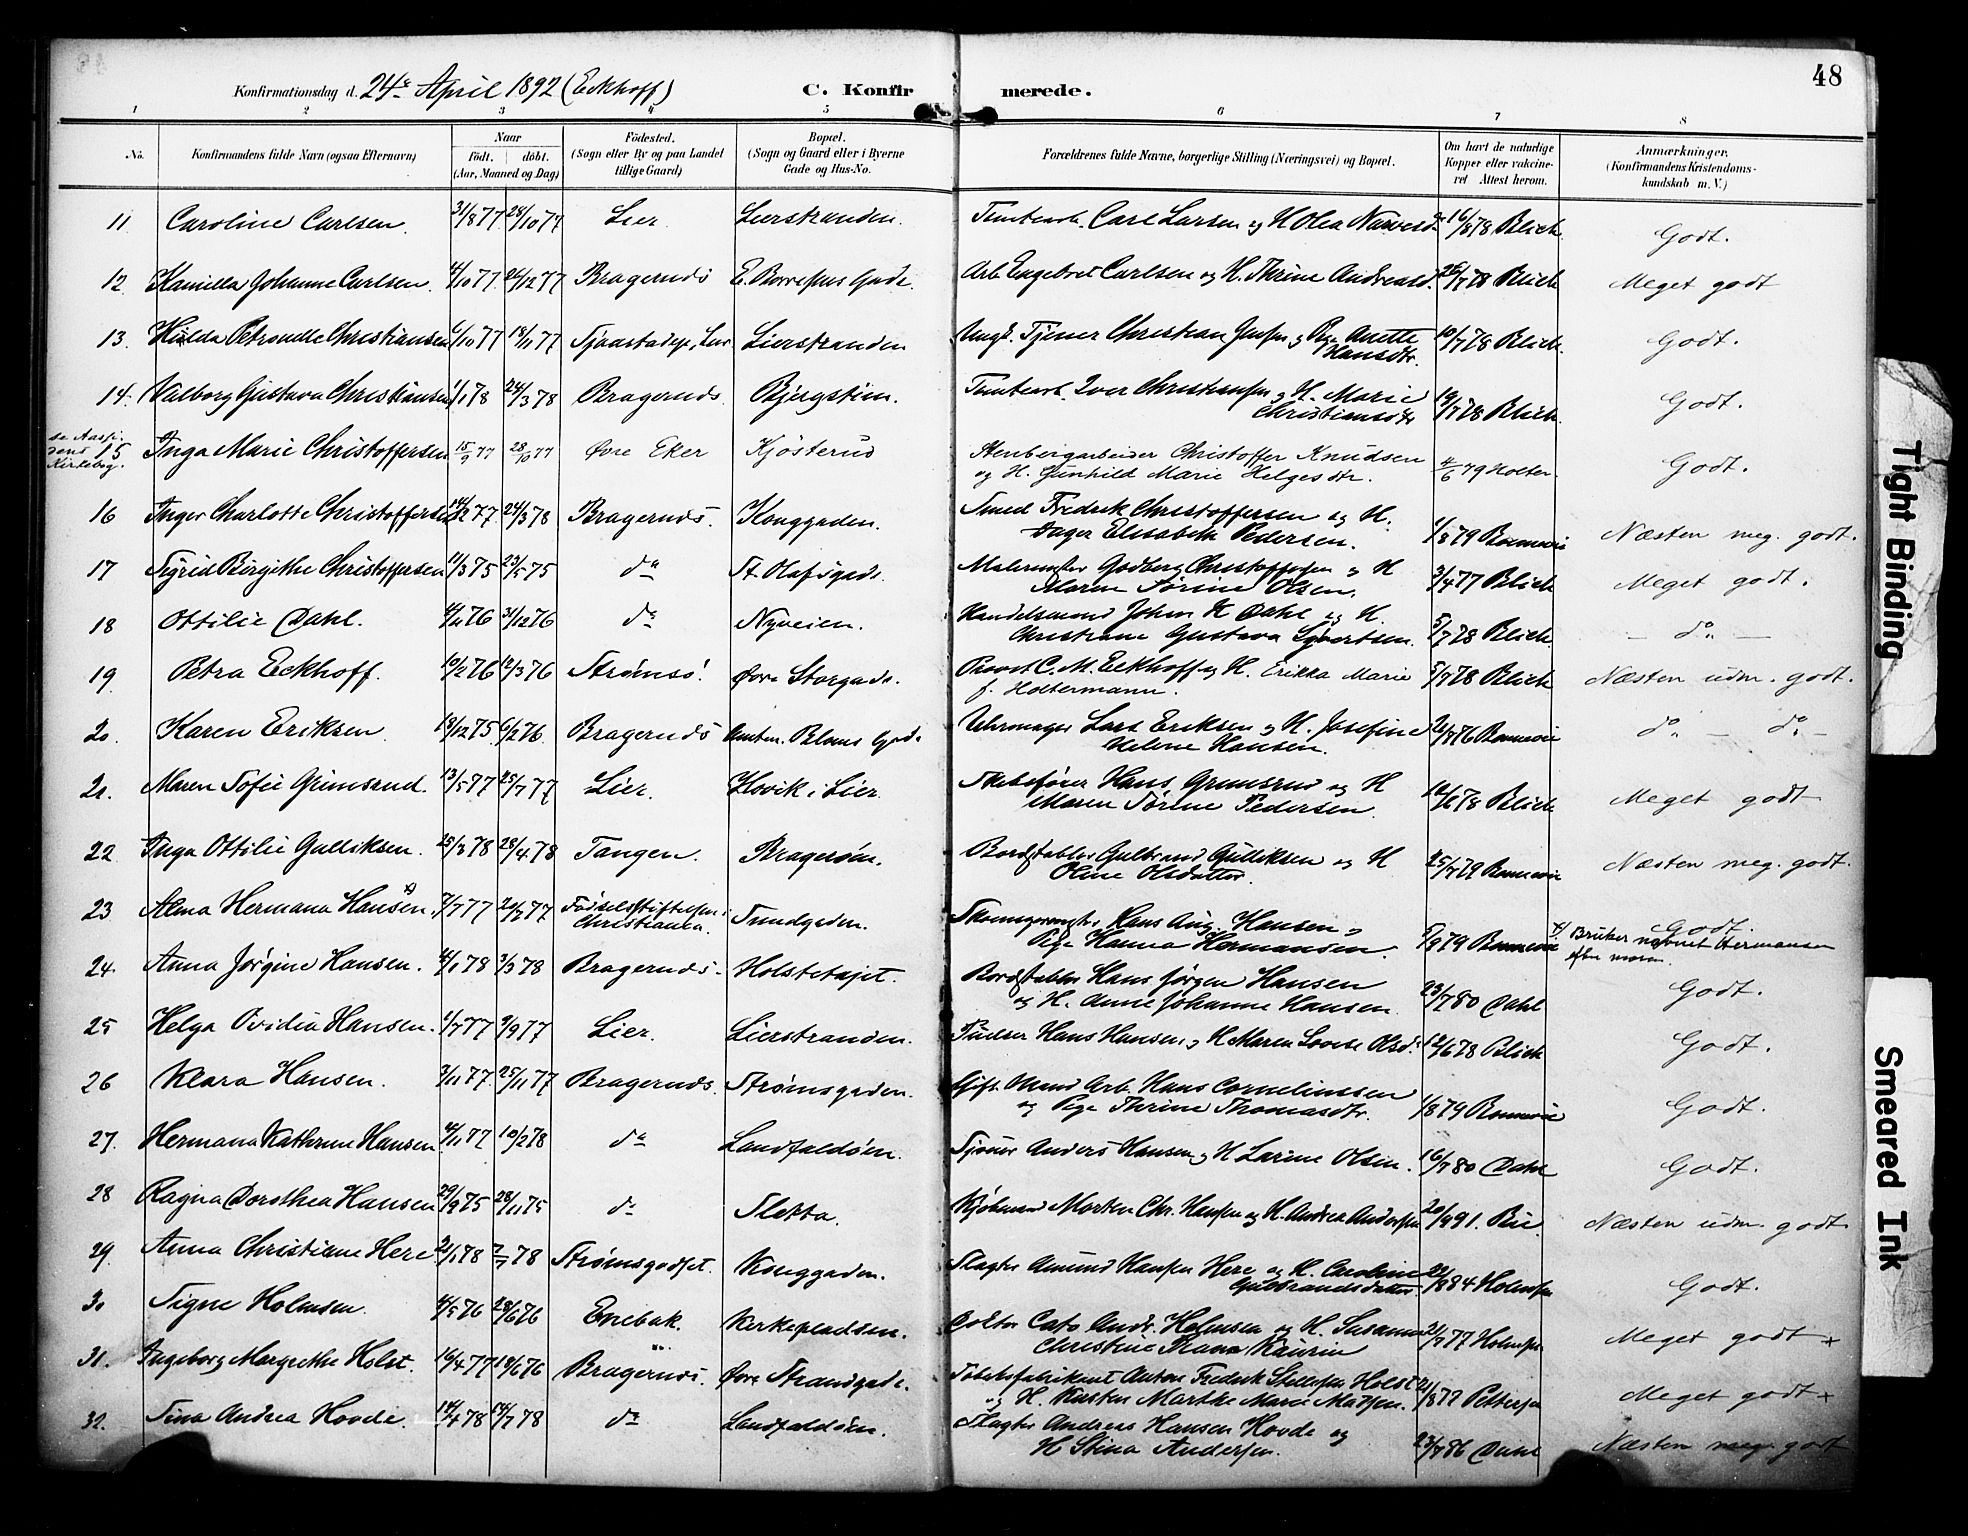 48
Konfirmationsdag d. 24de April 1892 (Eckhoff) C. Konfirmerede.
1 2 3 4 5 6 7 8
No. Konfirmandens fulde Navn (ogsaa Efternavn) Naar født. døbt. (Aar, Maaned og Dag) Fødested. (Sogn eller By og paa Landet tillige Gaard) Bopæl. (Sogn og Gaard eller i Byerne Gade og Hus-No. Forældrenes fulde Navne, borgerlige Stilling (Næringsvei) og Bopæl. Om havt de naturlige Kopper eller vakcineret Attest herom. Anmærkninger. (Konfirmandens Kristendomskundskab m. V.)
11 Caroline Carlsen. 31/8 77 28/10 77 Lier. Lierstranden. Tomtearb. Carl Larsen og H Olea 16/8 78 Blich. Godt.
12 Kamilla Johanne Carlsen. /10 77 26/12 77 Bragernæs E. Borresens Gade. Arb Engebret Carlsen og H. Thrine Andreasd. 26/7 78 Blich Meget godt
13. Hilda Petronelle Christiansen /10 77 18/11 77 Lier Lierstranden Ungk. Tjener Christian Jensen og Pige Anette Hansdtr. 10/7 78 Blich. Godt.
14. Valborg Gustava Christiansen 1/1 78 24/3 78 Bragernæs Bjergstien. Tomtearb. Iver Christiansen og H. Marie Christiansdtr 19/7 78 Blich. Godt.
se Aaspi-
rens 15
Kirkebog.
Inga Marie Christoffersen 15/9 77 28/10 77 Øvre Eker Kjøsterud Stenbergarbeider Christoffer Knudsen og H. Gunhild Marie Helgesdtr. 4/6 79 Holter. Godt.
16 Inger Charlotte Christoffersen /12 77. 24/3 78 Bragernæs. Konggaden. Smed Fredrik Christoffersen og H. Inger Elisabeth Pedersen. 1/8 79 Bonnevie Næsten meg. godt.
17 Sigrid Birgithe Christoffersen 11/3 75 23/5 75 do St. Olafsgade. Malermester Godberg Christoffersen og H Maren Sørine Olsen. 3/4 77 Blich Meget godt.
18 Ottilie Dahl. 76 31/12 76 do Nyveien. Handelsmand Johan H Dahl og H. Christiane Gustava Sivertsen. 5/7 78 Blich. – do. –
19. Petra Eckhoff. 10/2 76 12/3 76 Strømsø. Øvre Storgade. Provst C. M. Eckhoff og H. Erikka Marie f. Holtermann. 5/7 78 Blich Næsten udm. godt.
20. Karen Eriksen 18/12 75. 6/2 76. Bragernæs Amtm. Bloms Gade. Uhrmager Lars Eriksen og H. Josefine Helene Hansen. 76 Bonnevie do. – do. –
21. Maren Sofie Grimsrud. 13/5 77 25/7 77 Lier. Hovik i Lier. Skibsfører Hans Grimsrud og H Maren Sørine Pedersen. 12/6 78 Blich Meget godt
22 Inga Ottilie Gulliksen. 25/3 78 28/4 78 Tangen. Bragerøen. Bordstabler Gulbrand Gulliksen og H Oline Olsdatter. 25/7 79 Bonnevie Næsten meg. godt.
23 Alma Hermana Hansen. 7/7 77 20/7 77 Fødselsstiftelsen i Christiania. Tundgaden. Skomagermester Hans Aug. Hansen og Pige Hanna Hermansen. /8 79 Bonnevie Godt.
x) Bruker navnet Hermansen efter moren.
24. Anna Jørgine Hansen. /1 78 3/3 78 Bragernæs. Holstetajet. Bordstabler Hans Jørgen Hansen og H. Anne Johanne Hansen. 23/7 80 Dahl Godt.
25 Helga Ovidia Hansen. 1/7 77 9/9 77 Lier. Lierstranden. Pudser Hans Hansen og H Maren Lovise Olsd. 12/6 78 Blich Godt.
26 Klara Hansen. 3/11 77. 25/11 77 Bragernæs. Strømsgaden. Gift Mand Arb. Hans Corneliussen og Pige Thrine Thomasdtr. 1/8 79 Bonnevie Godt.
27. Hermana Kathrine Hansen /11 77 10/2 78 do Landfaldøen. Tjener Anders Hansen og H Larine Olsen. 16/7 80 Dahl Godt.
28 Ragna Dorothea Hansen 29/9 75 28/11 75 do Sletta. Kjøbmand Morten Chr. Hansen og H. Andrea Andersen 20/9 91. Bie. Næsten udm. godt
29. Anna Christiane Here 2/1 78 7/7 78 Strømsgodset. Konggaden. Slagter Amund Hansen Here og H. Caroline Gulbrandsdatter. 22/8 84 Holmsen Godt.
30 Signe Holmsen. 4/5 76 28/6 76 Enebak. Kirkepladsen. Doktor Cato Andr. Holmsen og H. Susanna Christine Kaurin /9 77 Holmsen Meget godt x
31. Ingeborg Margrethe Holst. 16/4 77 19/6 76 Bragernæs. Øvre Strandgade. Tobaksfabrikant Anton Fredrik Holst og H. Karsten Marthe Marie Madsen. /8 77 Pettersen Meget godt x
32. Tina Andrea Hovde. 14/4 78 14/7 78 do Landfaldøen. Slagter Andreas Hansen Hovde og H Stina Andersen. 23/7 86 Dahl Næsten meg. godt
Tight Binding
Smeared Ink